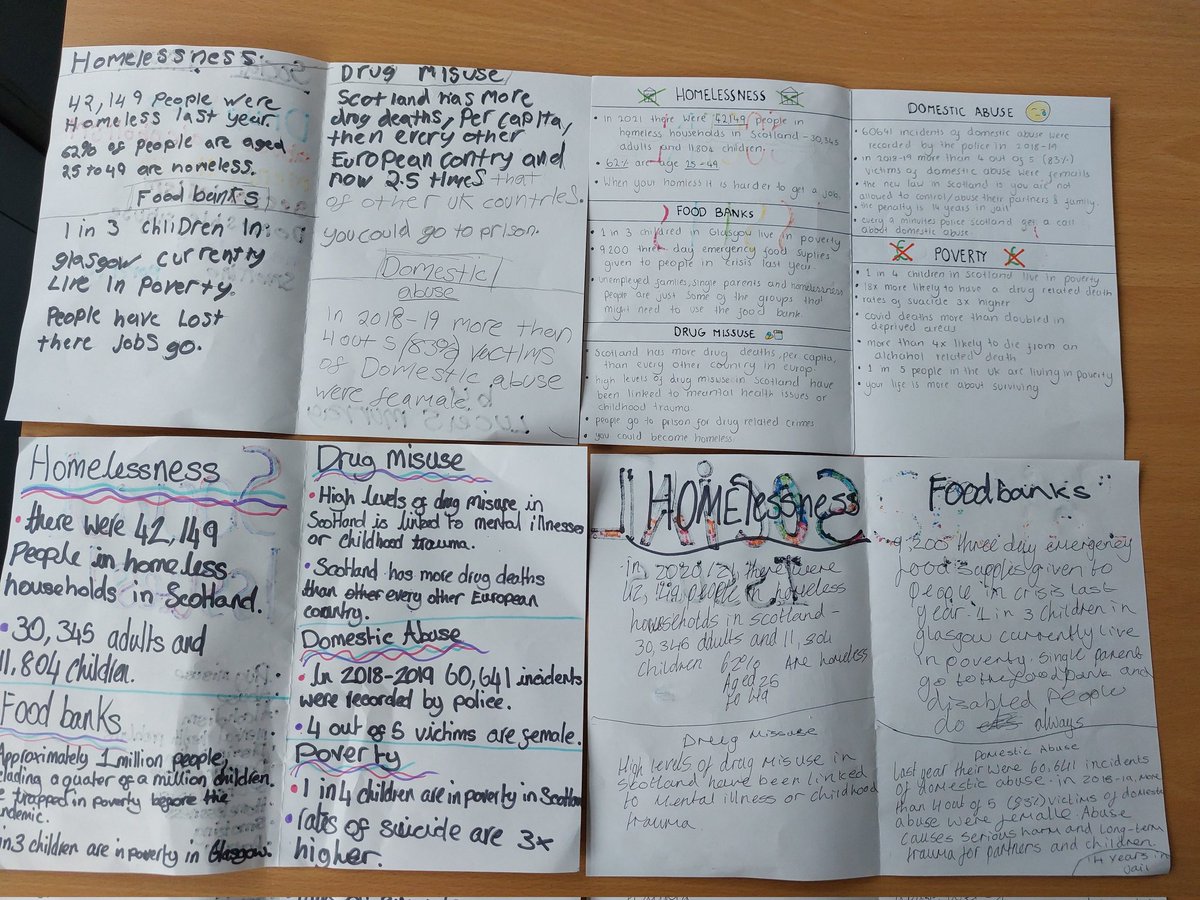 Homelessness.
42,149 People were
Homeless last year
62% of people are aged
25 to 49 are homeless.
Food banks
1 in 3 children in
glasgow currently
Live in Poverty.
People have Lost
there jobs go.
Drug misuse
Scotland has more
drug deaths, Per capita,
then every other
European contry and
now 2.5 times that
of other UK countries.
you could go to prison.
Domestic
abuse
In 2018-19 more than
4 out 5 (83%) victims
of Domestic abuse
were feamale.
HOMELESSNESS
• in 2021 there were 42149 people in
homeless households in scotland - 30,345
adults and 11,804 children.
• 62% are age 25-49
• When your homless it is harder to get a job.
FOOD BANKS
• 1 in 3 childred in Glasgow live in poverty
• 9200 three day emergency food suplies
given to people in crisis last year.
• unemployed famlies, single parents and homelessness
people are just some of the groups that
might need to use the food bank.
DRUG MISSUSE
• Scotland has more drug deaths, per capita,
than every other country in europ.
• high levels of drug misuse in Scotland have
been linked to meantal health issues or
childhood trauma.
• people go to prison for drug related crimes
• you could become homeless.
DOMESTIC ABUSE
• 60641 incidents of domestic abuse were
recorded by the police in 2018-19
• in 2018-19 more than 4 out of 5 (83%)
victims of domestic abuse were femails
• the new law in Scotland is you are not
allowed to control/abuse their partners & family.
• the penalty is 14 years in jail
• every 9 minutes police scotland get a call
about domestic abuse.
POVERTY
• 1 in 4 children in scotland live in poverty
• 18x more likely to have a drug related death
• rates of suacide 3x higher
• covid deaths more than doubled in
deprived areas
• more than 4x likely to die from an
alchahol related death
• 1 in 5 people in the UK are living in poverty
• your life is more about surviving
Homelessness
• there were 42,149
People in homeless
households in Scotland.
• 30,345 adults and
11,804 children.
Food banks
Approximately 1 million people,
a quater of a million children,
trapped in poverty before the
in 3 children are in poverty in Glasgow.
Drug misuse
• High levels of drug misuse in
Scotland is linked to mental illnesses
or childhood trauma.
• Scotland has more drug deaths
than other every other European
country.
Domestic Abuse
• In 2018-2019 60,641 incidents
were recorded by police.
• 4 out of 5 victims are female.
Poverty
• 1 in 4 children are in poverty in Scotland
• rates of suicide are 3x
higher.
HOMElessness
in 2020/21 there were
people in homeless
households in scotland -
30,345 adults and 11,804
children 62% Are homless
Aged 25
to 49
Drug Missuse
High levels of drug misuse in
Scotland have been linked
to mental illness or childhood
trauma
Foodbanks
9,200 three day emergency
food supplys given to
People in crisis last
year. 1 in 3 children in
glasgow currently live
in poverty. single parents
go to the food bank and
disabled People
do always
Domestic Abuse
last year their were 60.641 incidents
of domestic abuse. in 2018-19, more
than 4 out of 5 (83%) victims of domestic
abuse were female. Abuse
causes serious harm and long-term
trauma for partners and children.
14 years in
jail